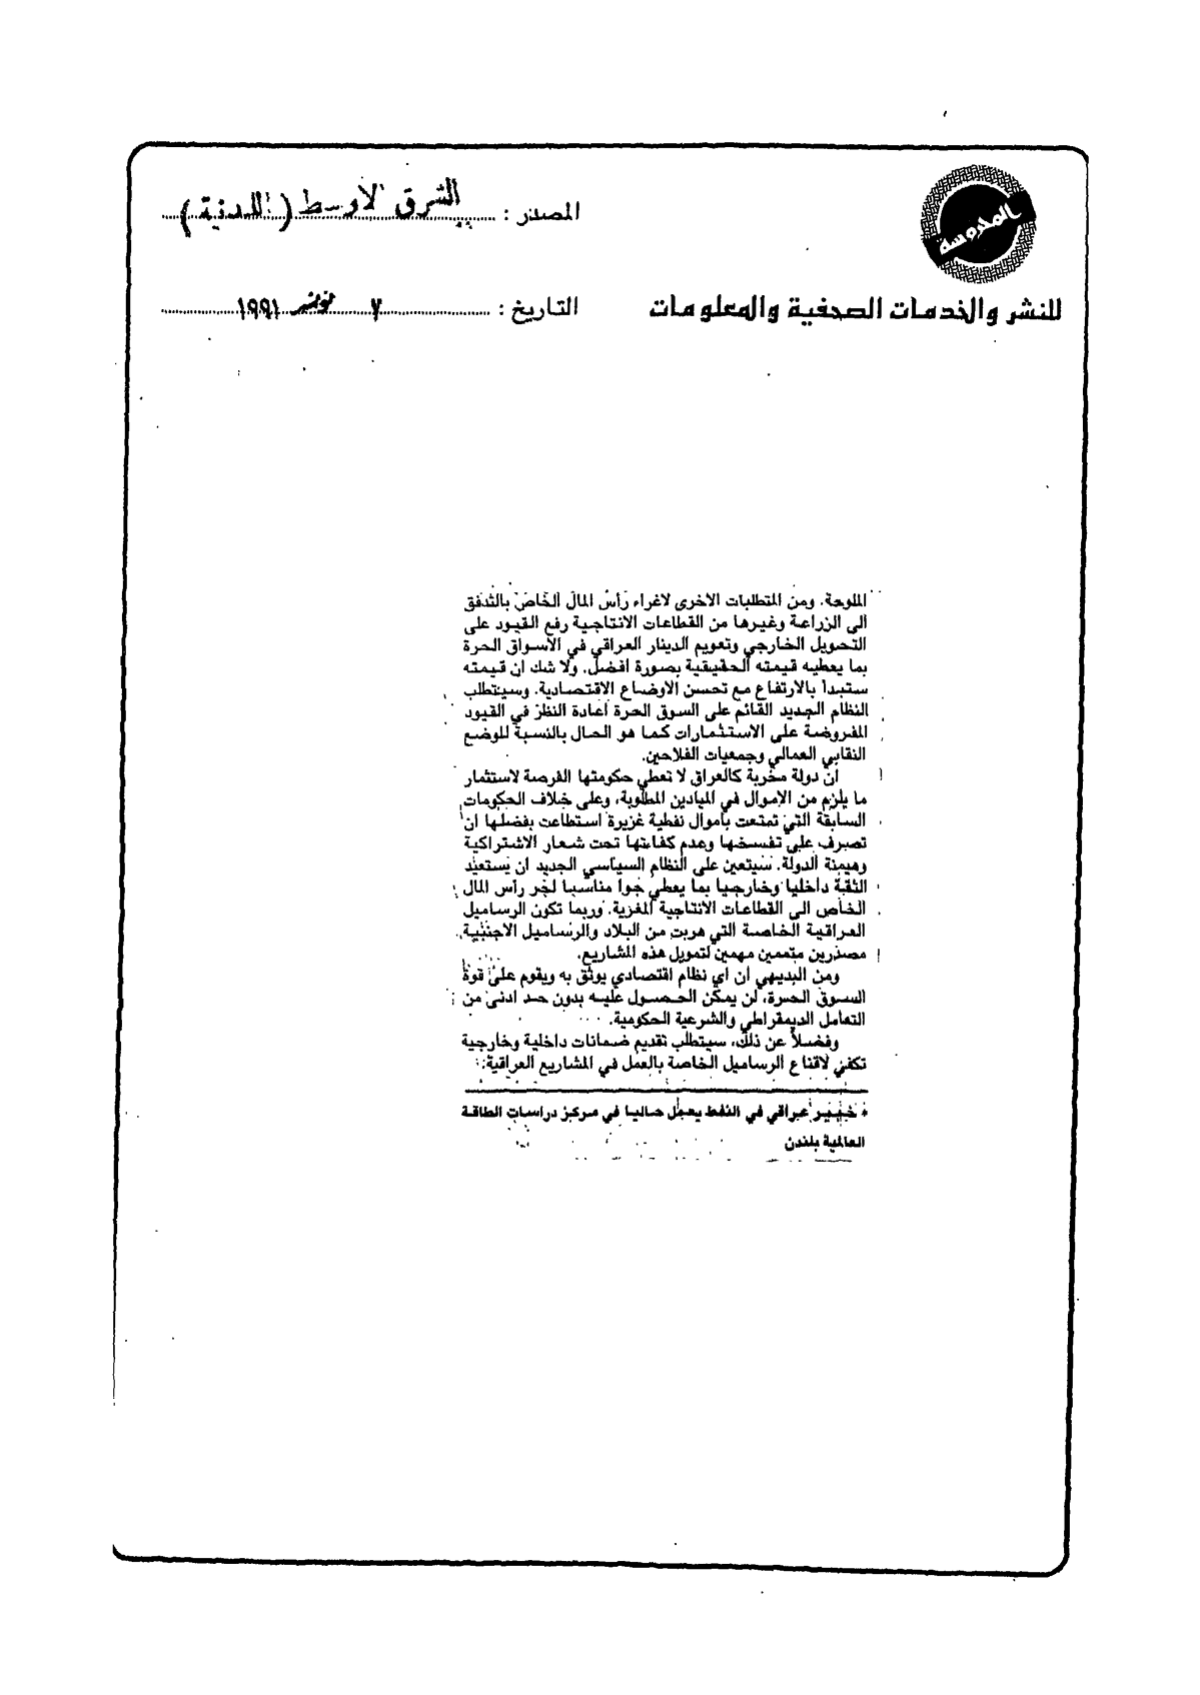 المحروسة
المصدر : الشرق الاوسط (اللندنية)
للنشر والخدمات الصحفية والمعلومات
التاريخ : ٧ نوفمبر ١٩٩١
الملوحة. ومن المتطلبات الاخرى لاغراء رأس المال الخاص بالتدفق
الى الزراعة وغيرها من القطاعات الانتاجية رفع القيود على
التحويل الخارجي وتعويم الدينار العراقي في الاسواق الحرة
بما يعطيه قيمته الحقيقية بصورة افضل. ولا شك ان قيمته
ستبدأ بالارتفاع مع تحسن الاوضاع الاقتصادية. وسيتطلب
النظام الجديد القائم على السوق الحرة اعادة النظر في القيود
المفروضة على الاستثمارات كما هو الحال بالنسبة للوضع
النقابي العمالي وجمعيات الفلاحين.
ان دولة مخربة كالعراق لا تعطي حكومتها الفرصة لاستثمار
ما يلزم من الاموال في الميادين المطلوبة، وعلى خلاف الحكومات
السابقة التي تمتعت بأموال نفطية غزيرة استطاعت بفضلها ان
تصرف على تفسخها وعدم كفاءتها تحت شعار الاشتراكية
وهيمنة الدولة. سيتعين على النظام السياسي الجديد ان يستعيد
الثقة داخليا وخارجيا بما يعطي جوا مناسبا لجر رأس المال
الخاص الى القطاعات الانتاجية المغرية. وربما تكون الرساميل
العراقية الخاصة التي هربت من البلاد والرساميل الاجنبية،
مصدرين متممين مهمين لتمويل هذه المشاريع.
ومن البديهي ان اي نظام اقتصادي يوثق به ويقوم على قوة
السوق الحرة، لن يمكن الحصول عليه بدون حد ادنى من
التعامل الديمقراطي والشرعية الحكومية.
وفضلاً عن ذلك، سيتطلب تقديم ضمانات داخلية وخارجية
تكفي لاقناع الرساميل الخاصة بالعمل في المشاريع العراقية.
* خبير عراقي في النفط يعمل حاليا في مركز دراسات الطاقة
العالمية بلندن